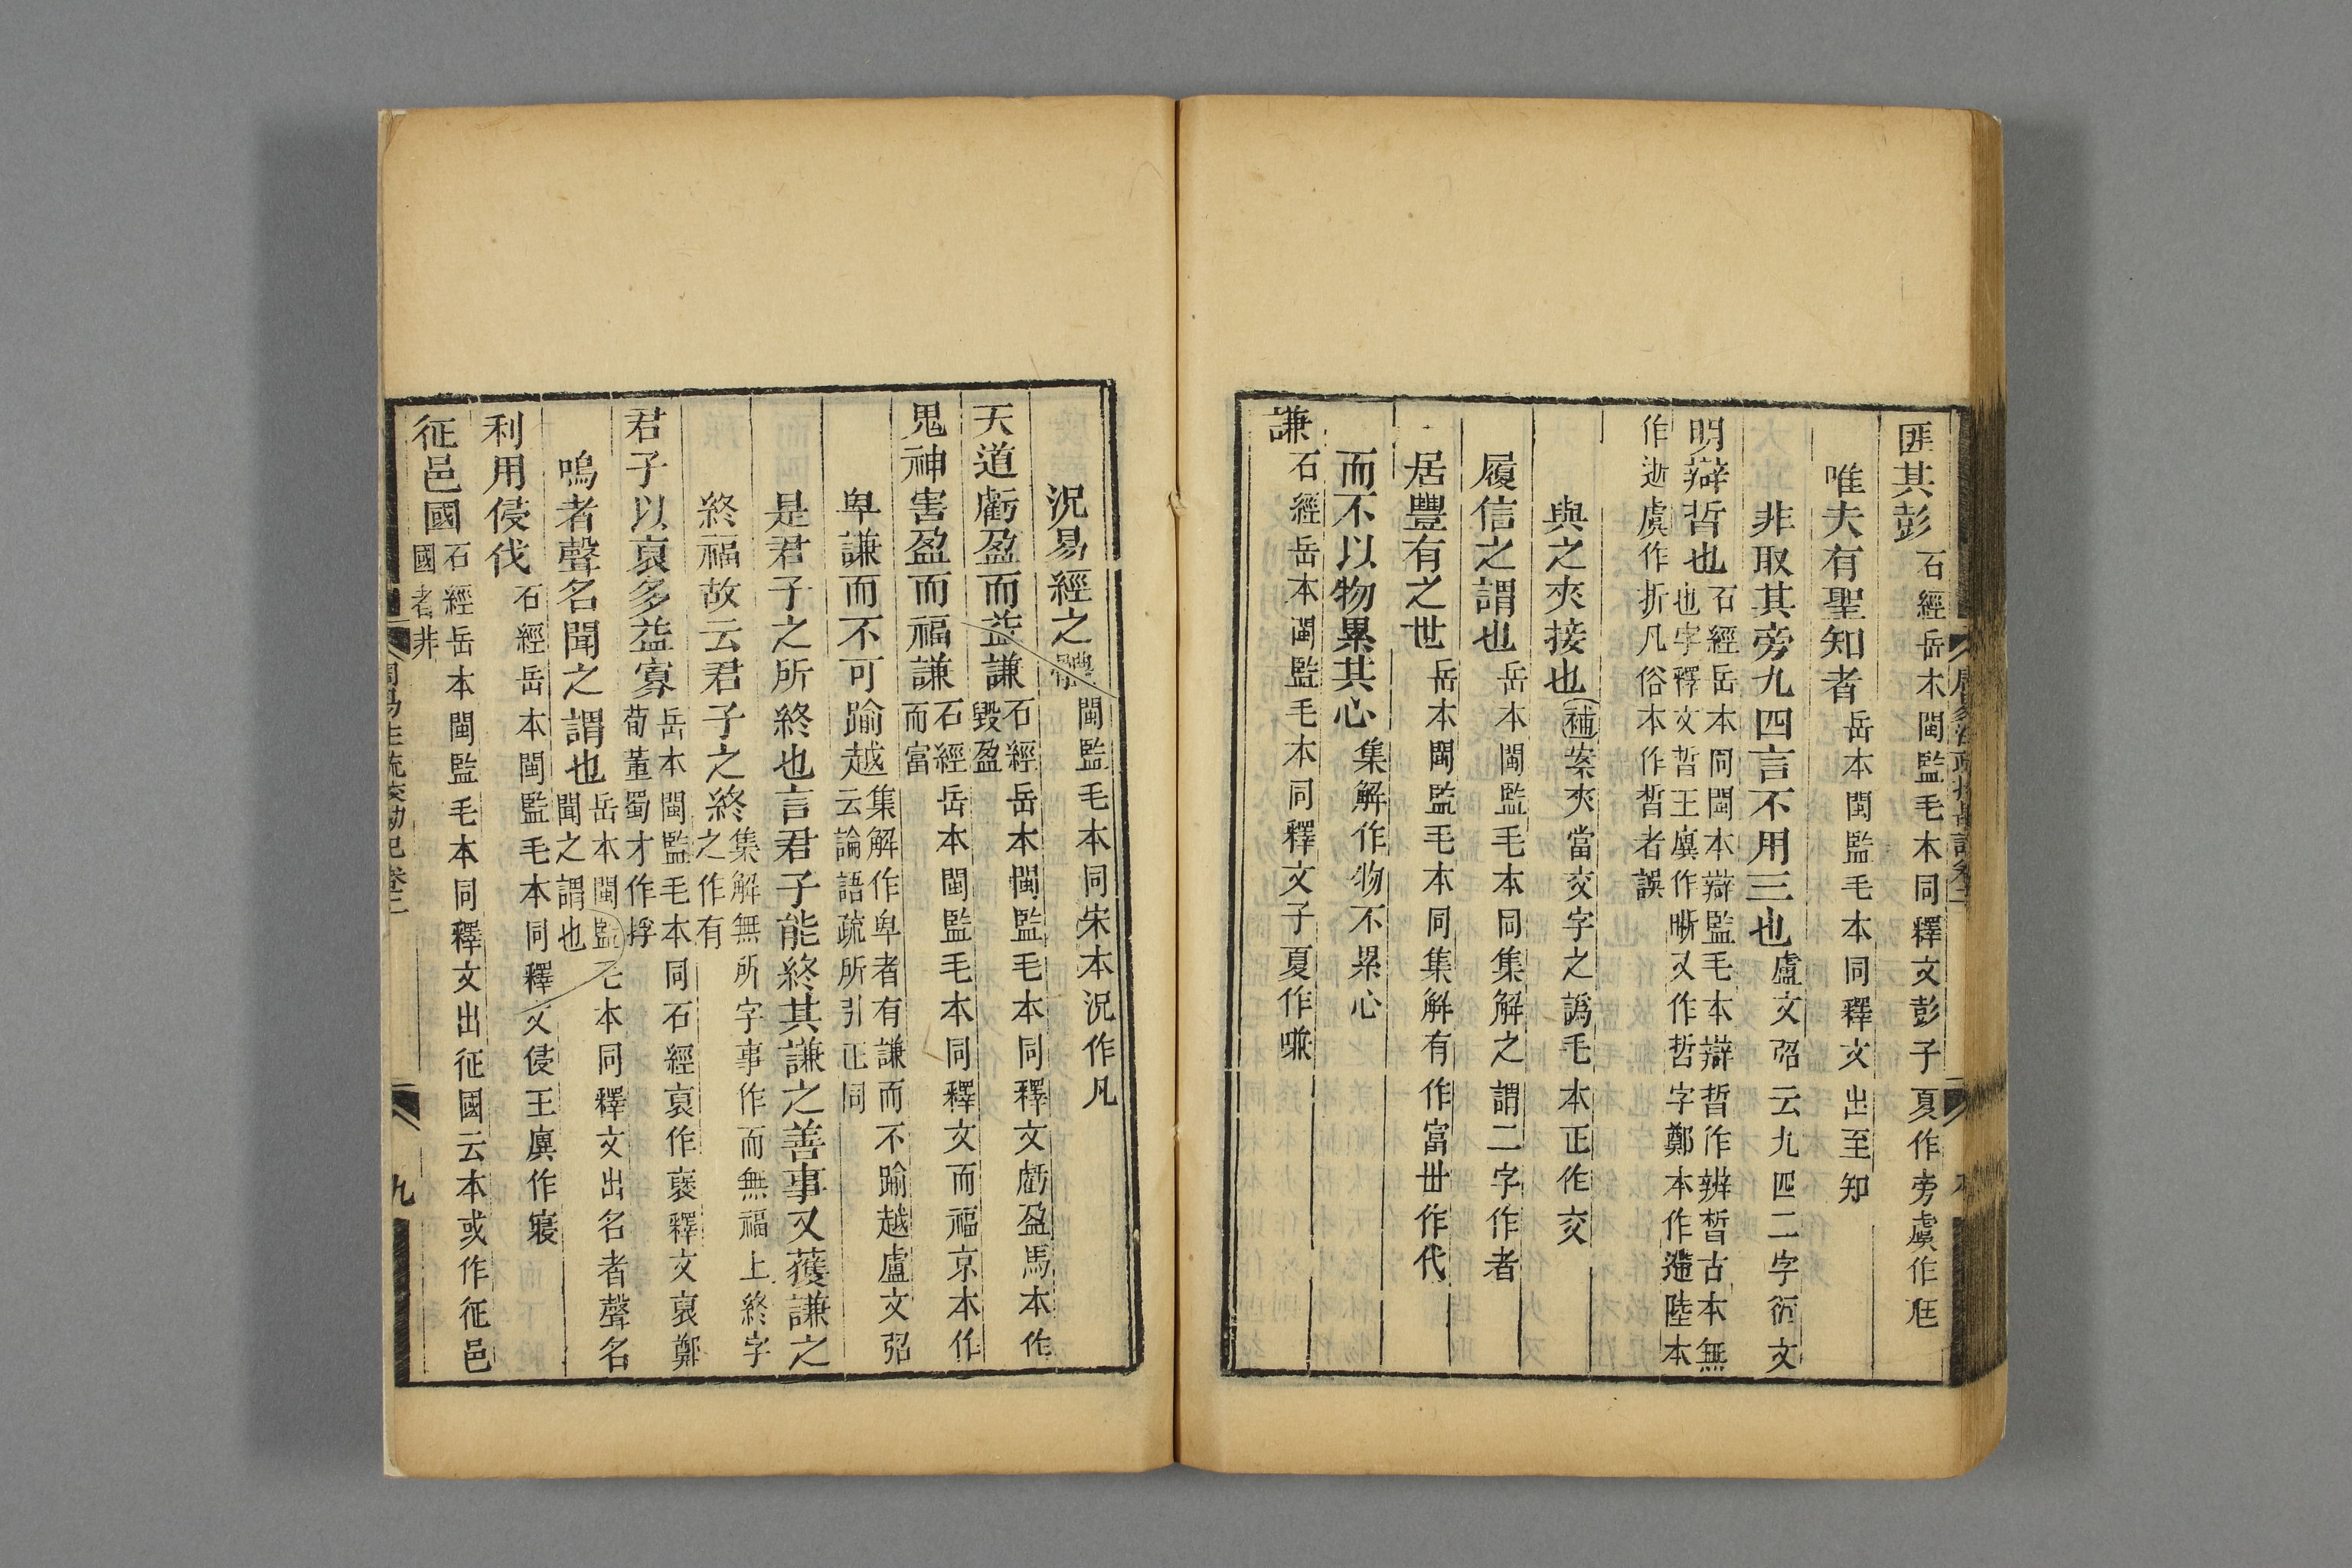 匪其彭石經岳本閩監毛本同釋文彭子夏作旁虞作尫
唯夫有聖知者岳本閩監毛本同釋文出至知
非取其旁九四言不用三也盧文弨云九四二字衍文
明辯晢也石經岳本同閩本辯監毛本辯晢作辨晳古本無
也字釋文晢王廙作晣又作哲字鄭本作遰陸本
作逝虞作折凡俗本作晳者誤
與之夾接也補案夾當交字之譌毛本正作交
履信之謂也岳本閩監毛本同集解之謂二字作者
居豐有之世岳本閩監毛本同集解有作富世作代
而不以物累其心集解作物不累心
謙石經岳本閩監毛本同釋文子夏作嗛
況易經之體閩監毛本同宋本況作凡
天道虧盈而益謙石經岳本閩監毛本同釋文虧盈馬本作
毀盈
鬼神害盈而福謙石經岳本閩監毛本同釋文而福京本作
而富
卑謙而不可踰越集解作卑者有謙而不踰越盧文弨
云論語疏所引正同
是君子之所終也言君子能終其謙之善事又獲謙之
終福故云君子之終集解無所字事作而無福上終字
之作有
君子以裒多益寡岳本閩監毛本同石經裒作褒釋文裒鄭
荀董蜀才作捊
鳴者聲名聞之謂也岳本閩監毛本同釋文出名者聲名
聞之謂也
利用侵伐石經岳本閩監毛本同釋文侵王廙作寑
征邑國石經岳本閩監毛本同釋文出征國云本或作征邑
國者非
周易注疏校勘記卷二
九